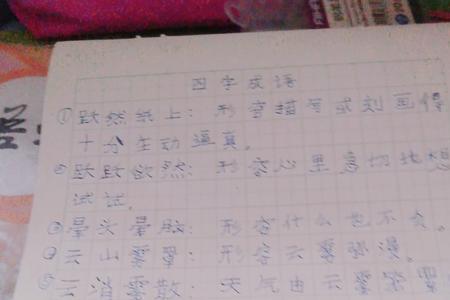 四字成语
①跃然纸上:形容描写或刻画得
十分生动逼真。
②跃跃欲然:形容心里急切地想
试试。
③晕头晕脑:形容什么也不会。
④云山雾罩:形容云雾弥漫。
⑤云消雾散:天气由云雾